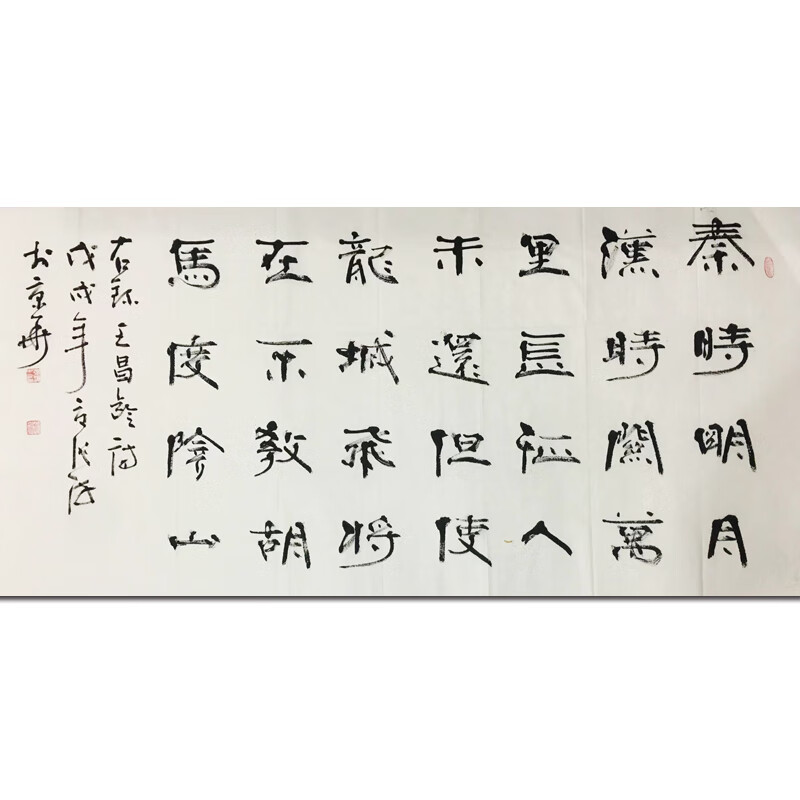 秦時明月
漢時關萬
里長征人
未還但使
龍城飛將
在不教胡
馬度陰山
右錄王昌齡詩
戊戌年
於京華